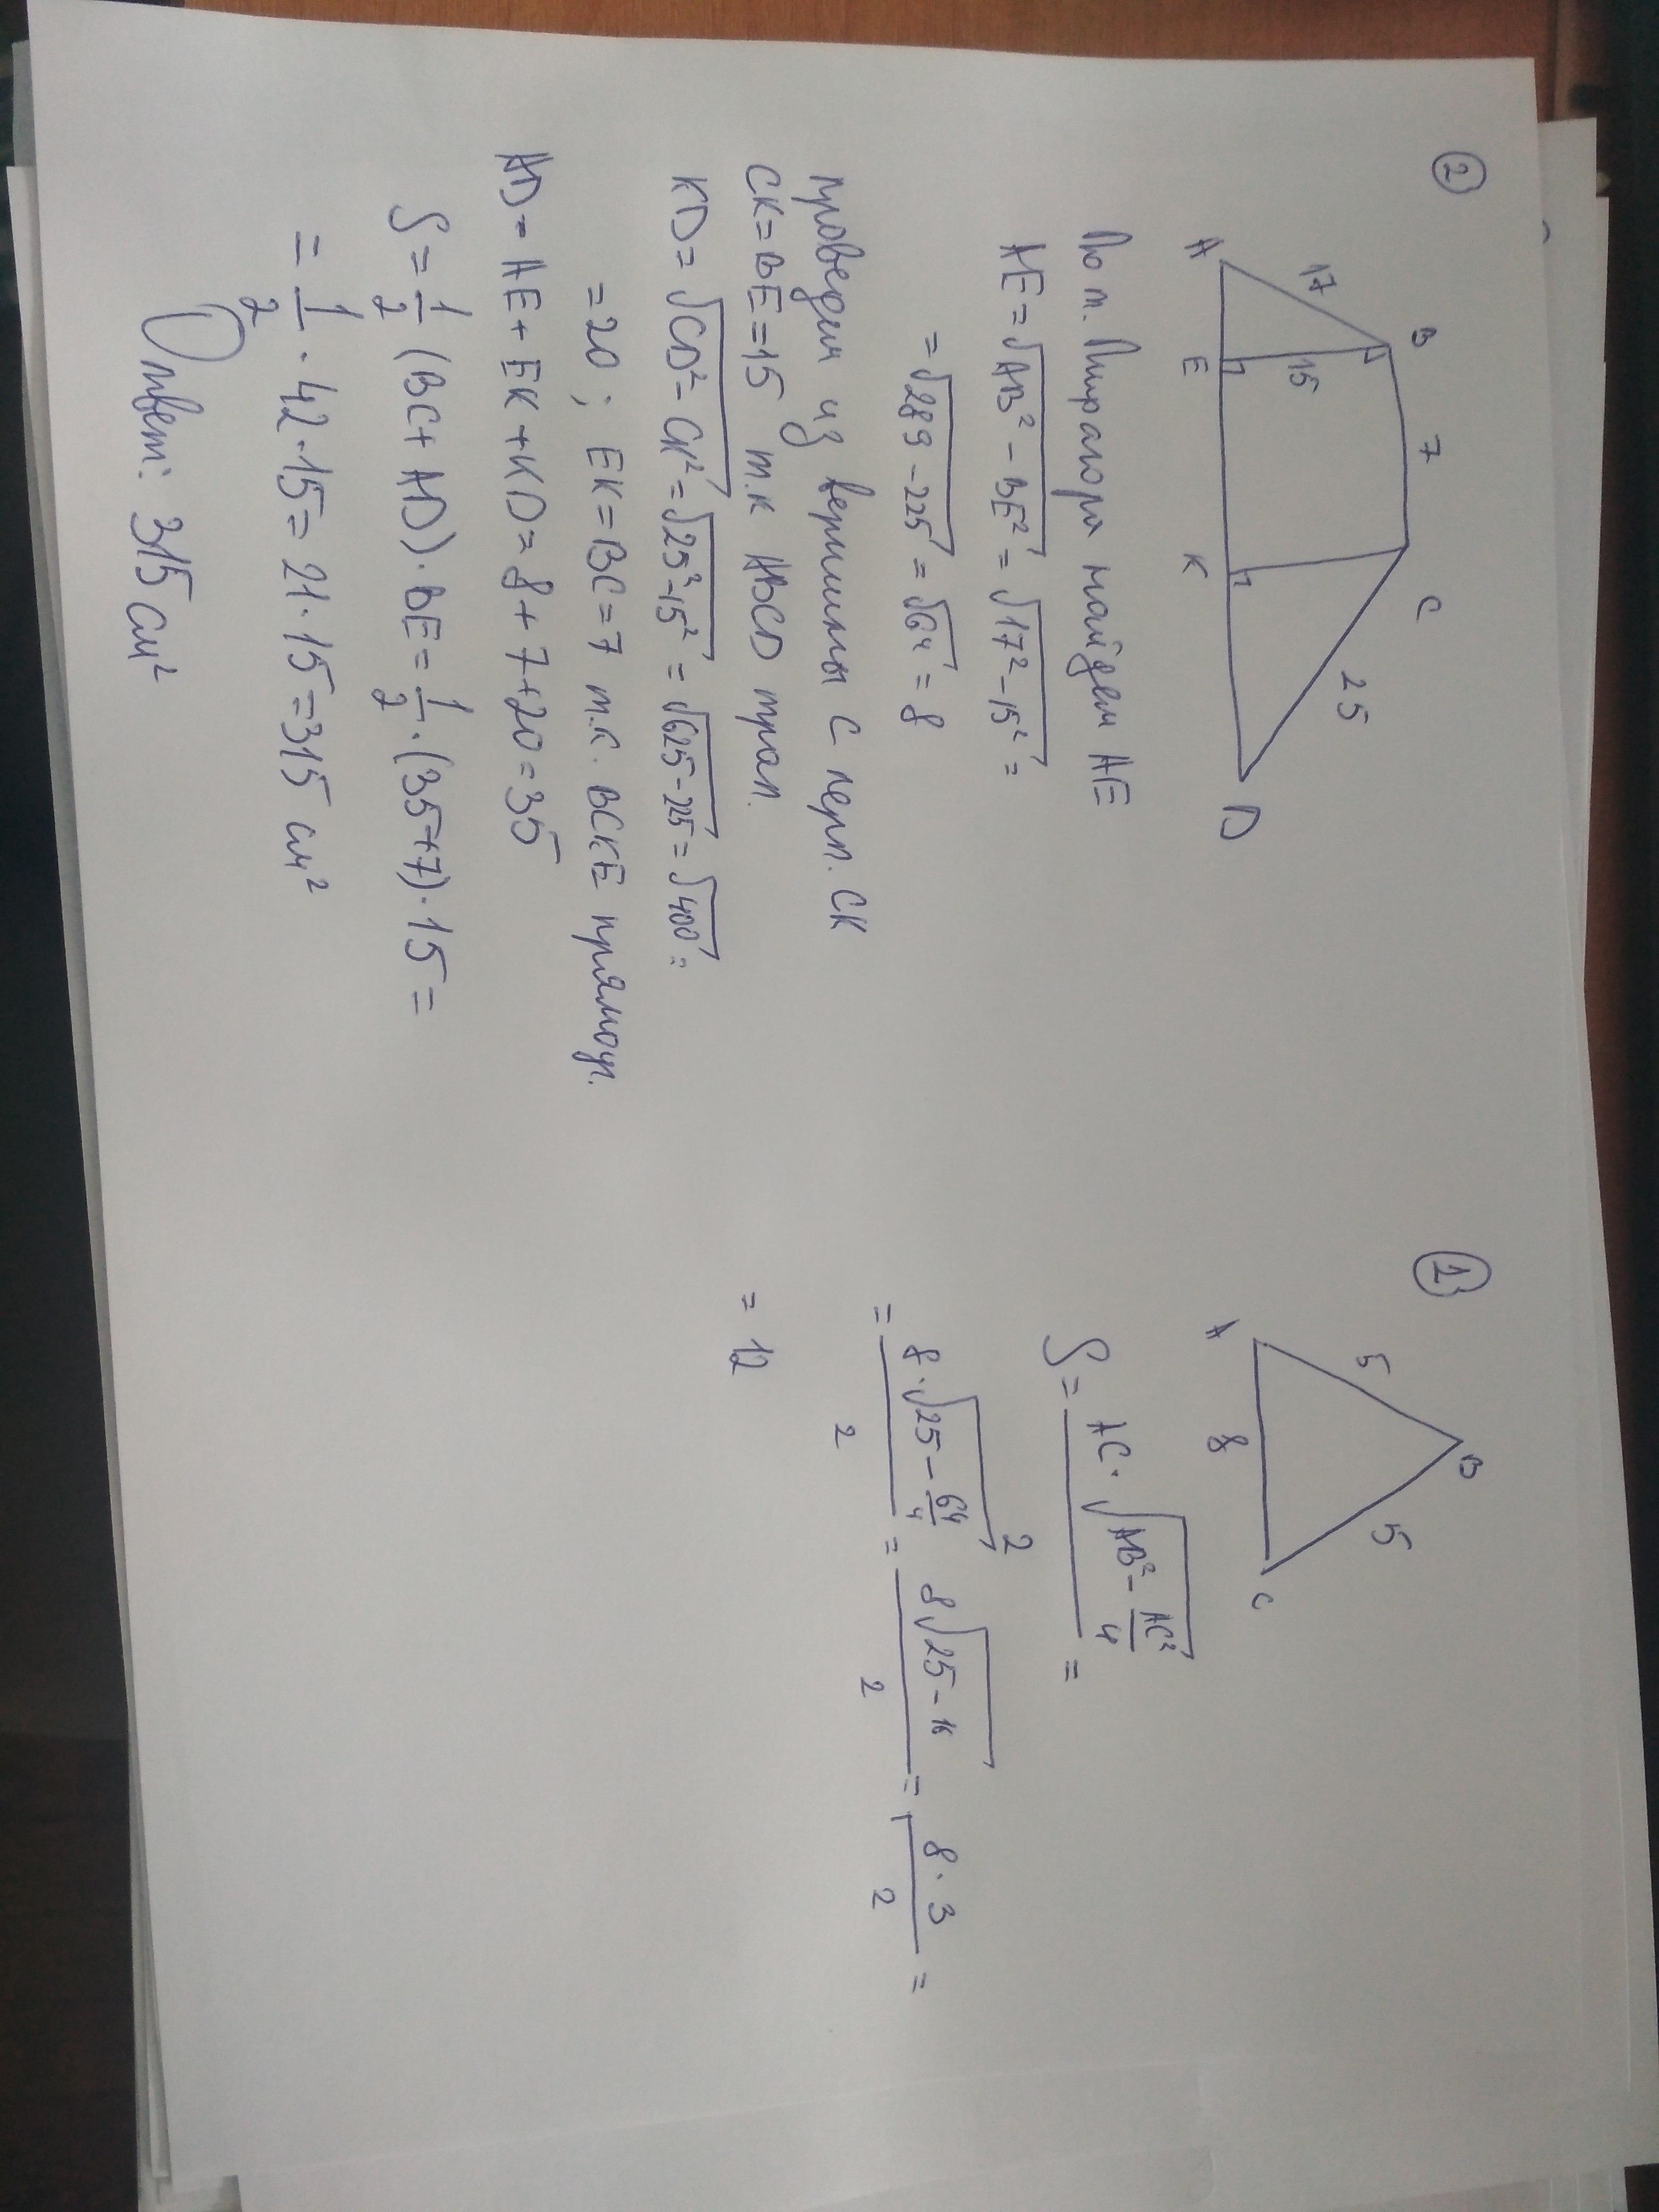 ②
B 7 C
17 15 25
A E K D
По т. Пифагора найдем AE
AE = √AB² - BE² = √17² - 15² =
= √289 - 225 = √64 = 8
проведем из вершины C перп. CK
CK = BE = 15 т.к ABCD трап.
KD = √CD² - CK² = √25² - 15² = √625 - 225 = √400 =
= 20 ; EK = BC = 7 т.к. BCKE прямоуг.
AD = AE + EK + KD = 8 + 7 + 20 = 35
S = 1/2 (BC + AD) · BE = 1/2 · (35 + 7) · 15 =
= 1/2 · 42 · 15 = 21 · 15 = 315 см²
Ответ: 315 см²
①
B
5 5
A 8 C
S = AC · √AB² - AC²/4 / 2 =
= 8 · √25 - 64/4 / 2 = 8√25 - 16 / 2 = 8 · 3 / 2 =
= 12